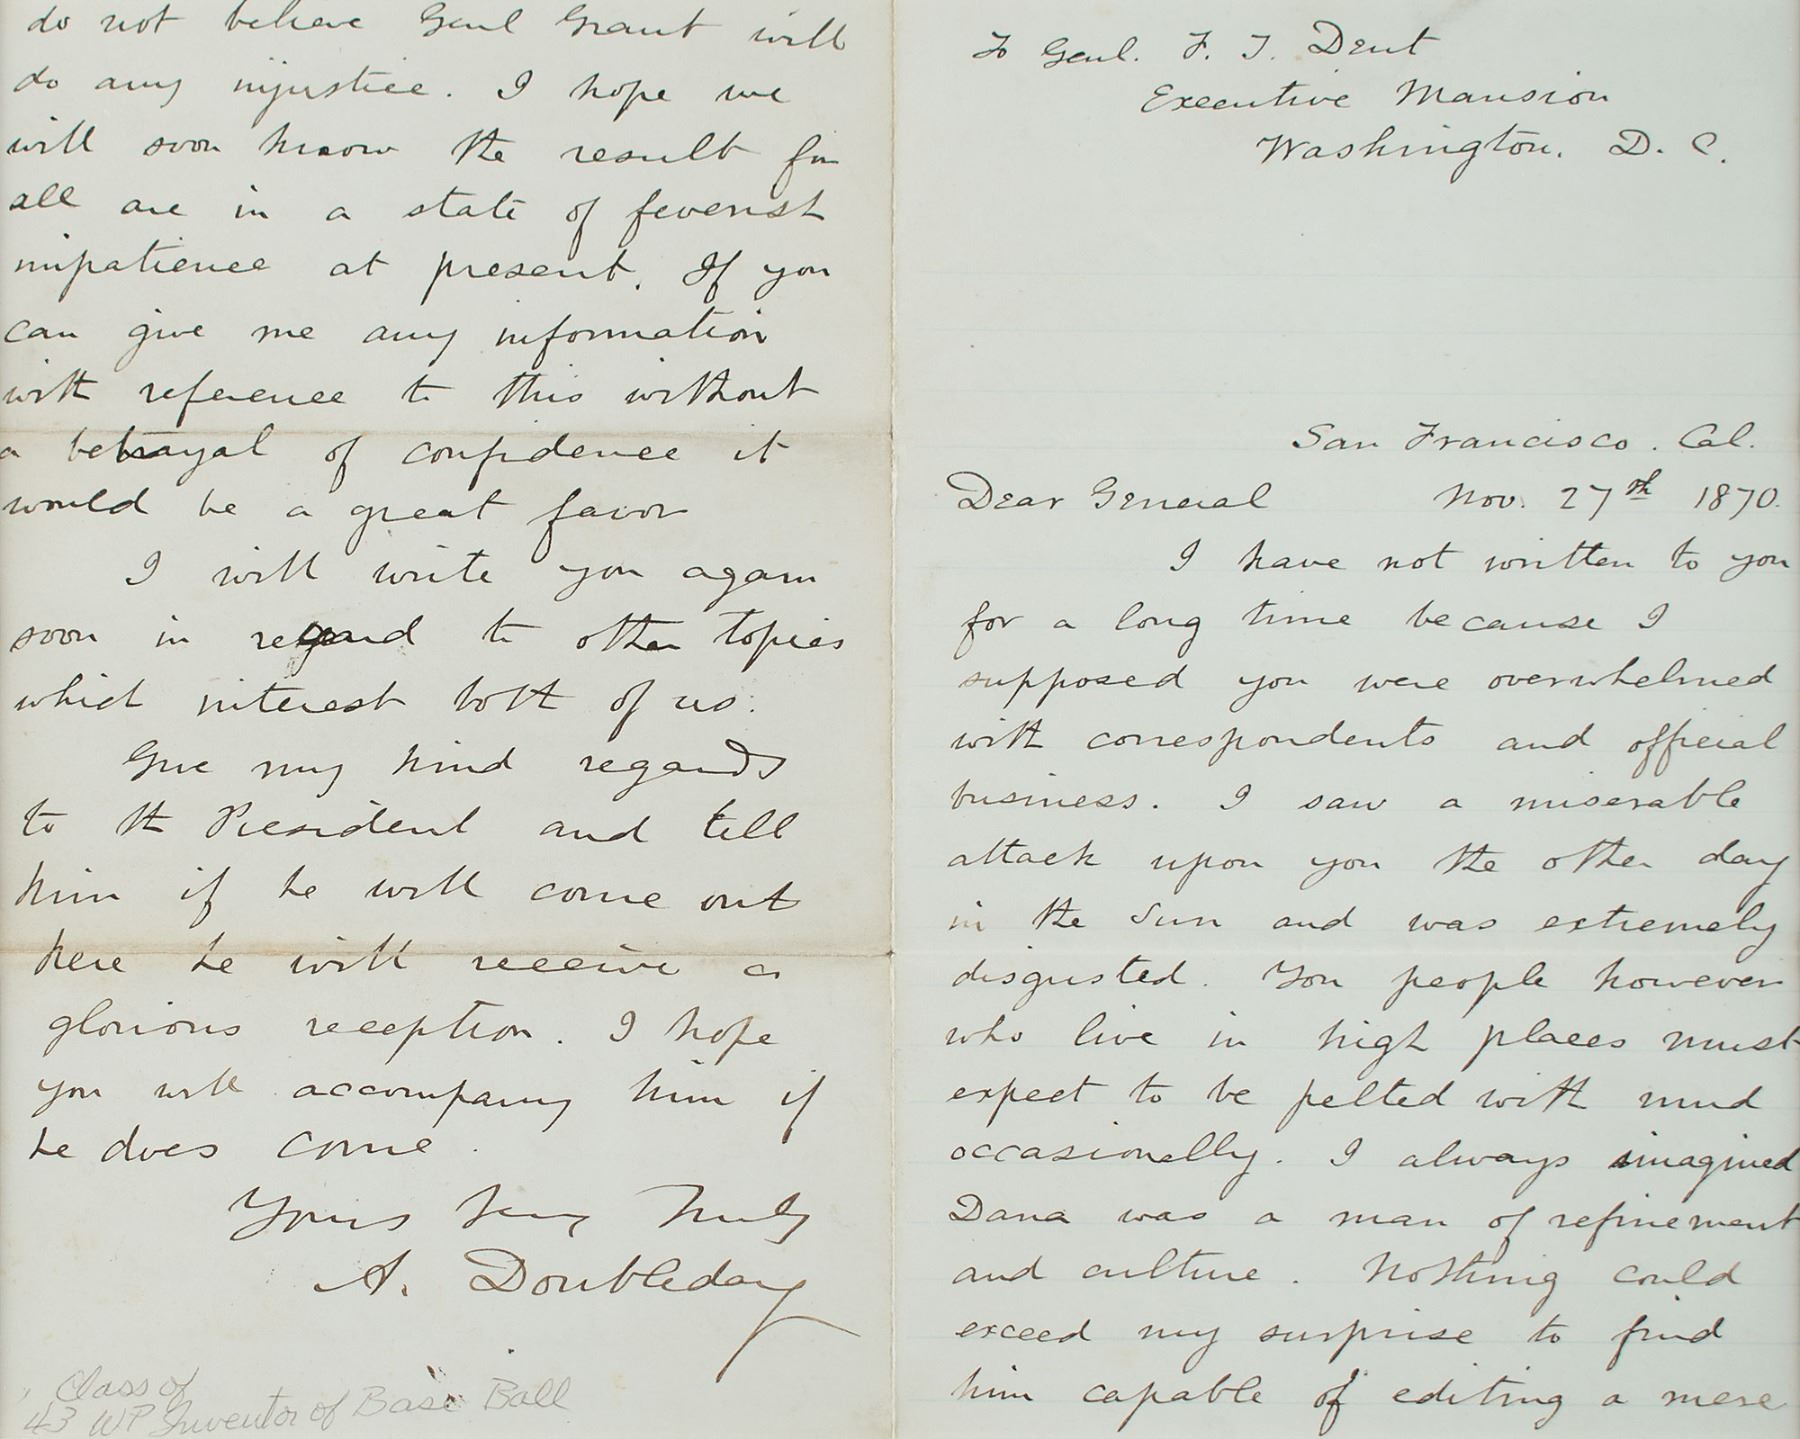 do not believe Genl Grant will
do any injustice. I hope we
will soon know the result for
all are in a state of feverish
impatience at present. If you
can give me any information
with reference to this without
a betrayal of confidence it
would be a great favor
I will write you again
soon in regard to other topics
which interest both of us.
Give my kind regards
to the President and tell
him if he will come out
here he will receive a
glorious reception. I hope
you will accompany him if
he does come.
Yours Very Truly
A. Doubleday
Class of
43 WP Inventor of Base Ball
To Genl. F. T. Dent
Executive Mansion
Washington. D. C.
San Francisco. Cal.
Dear General Nov. 27th 1870.
I have not written to you
for a long time because I
supposed you were overwhelmed
with correspondents and official
business. I saw a miserable
attack upon you the other day
in the Sun and was extremely
disgusted. You people however
who live in high places must
expect to be pelted with mud
occasionally. I always imagined
Dana was a man of refinement
and culture. Nothing could
exceed my surprise to find
him capable of editing a mere